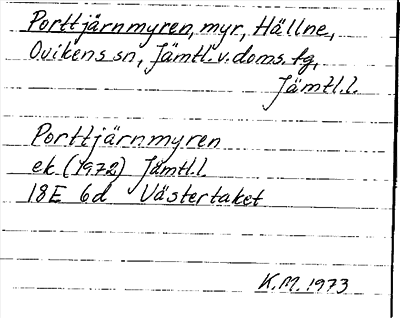 Porttjärnmyren, myr, Hällne,
Ovikens sn, Jämtl. v. doms. tg,
Jämtl.l.
Porttjärnmyren
ek. (1972) Jämtl.l
18E 6d Västertaket
K.M. 1973